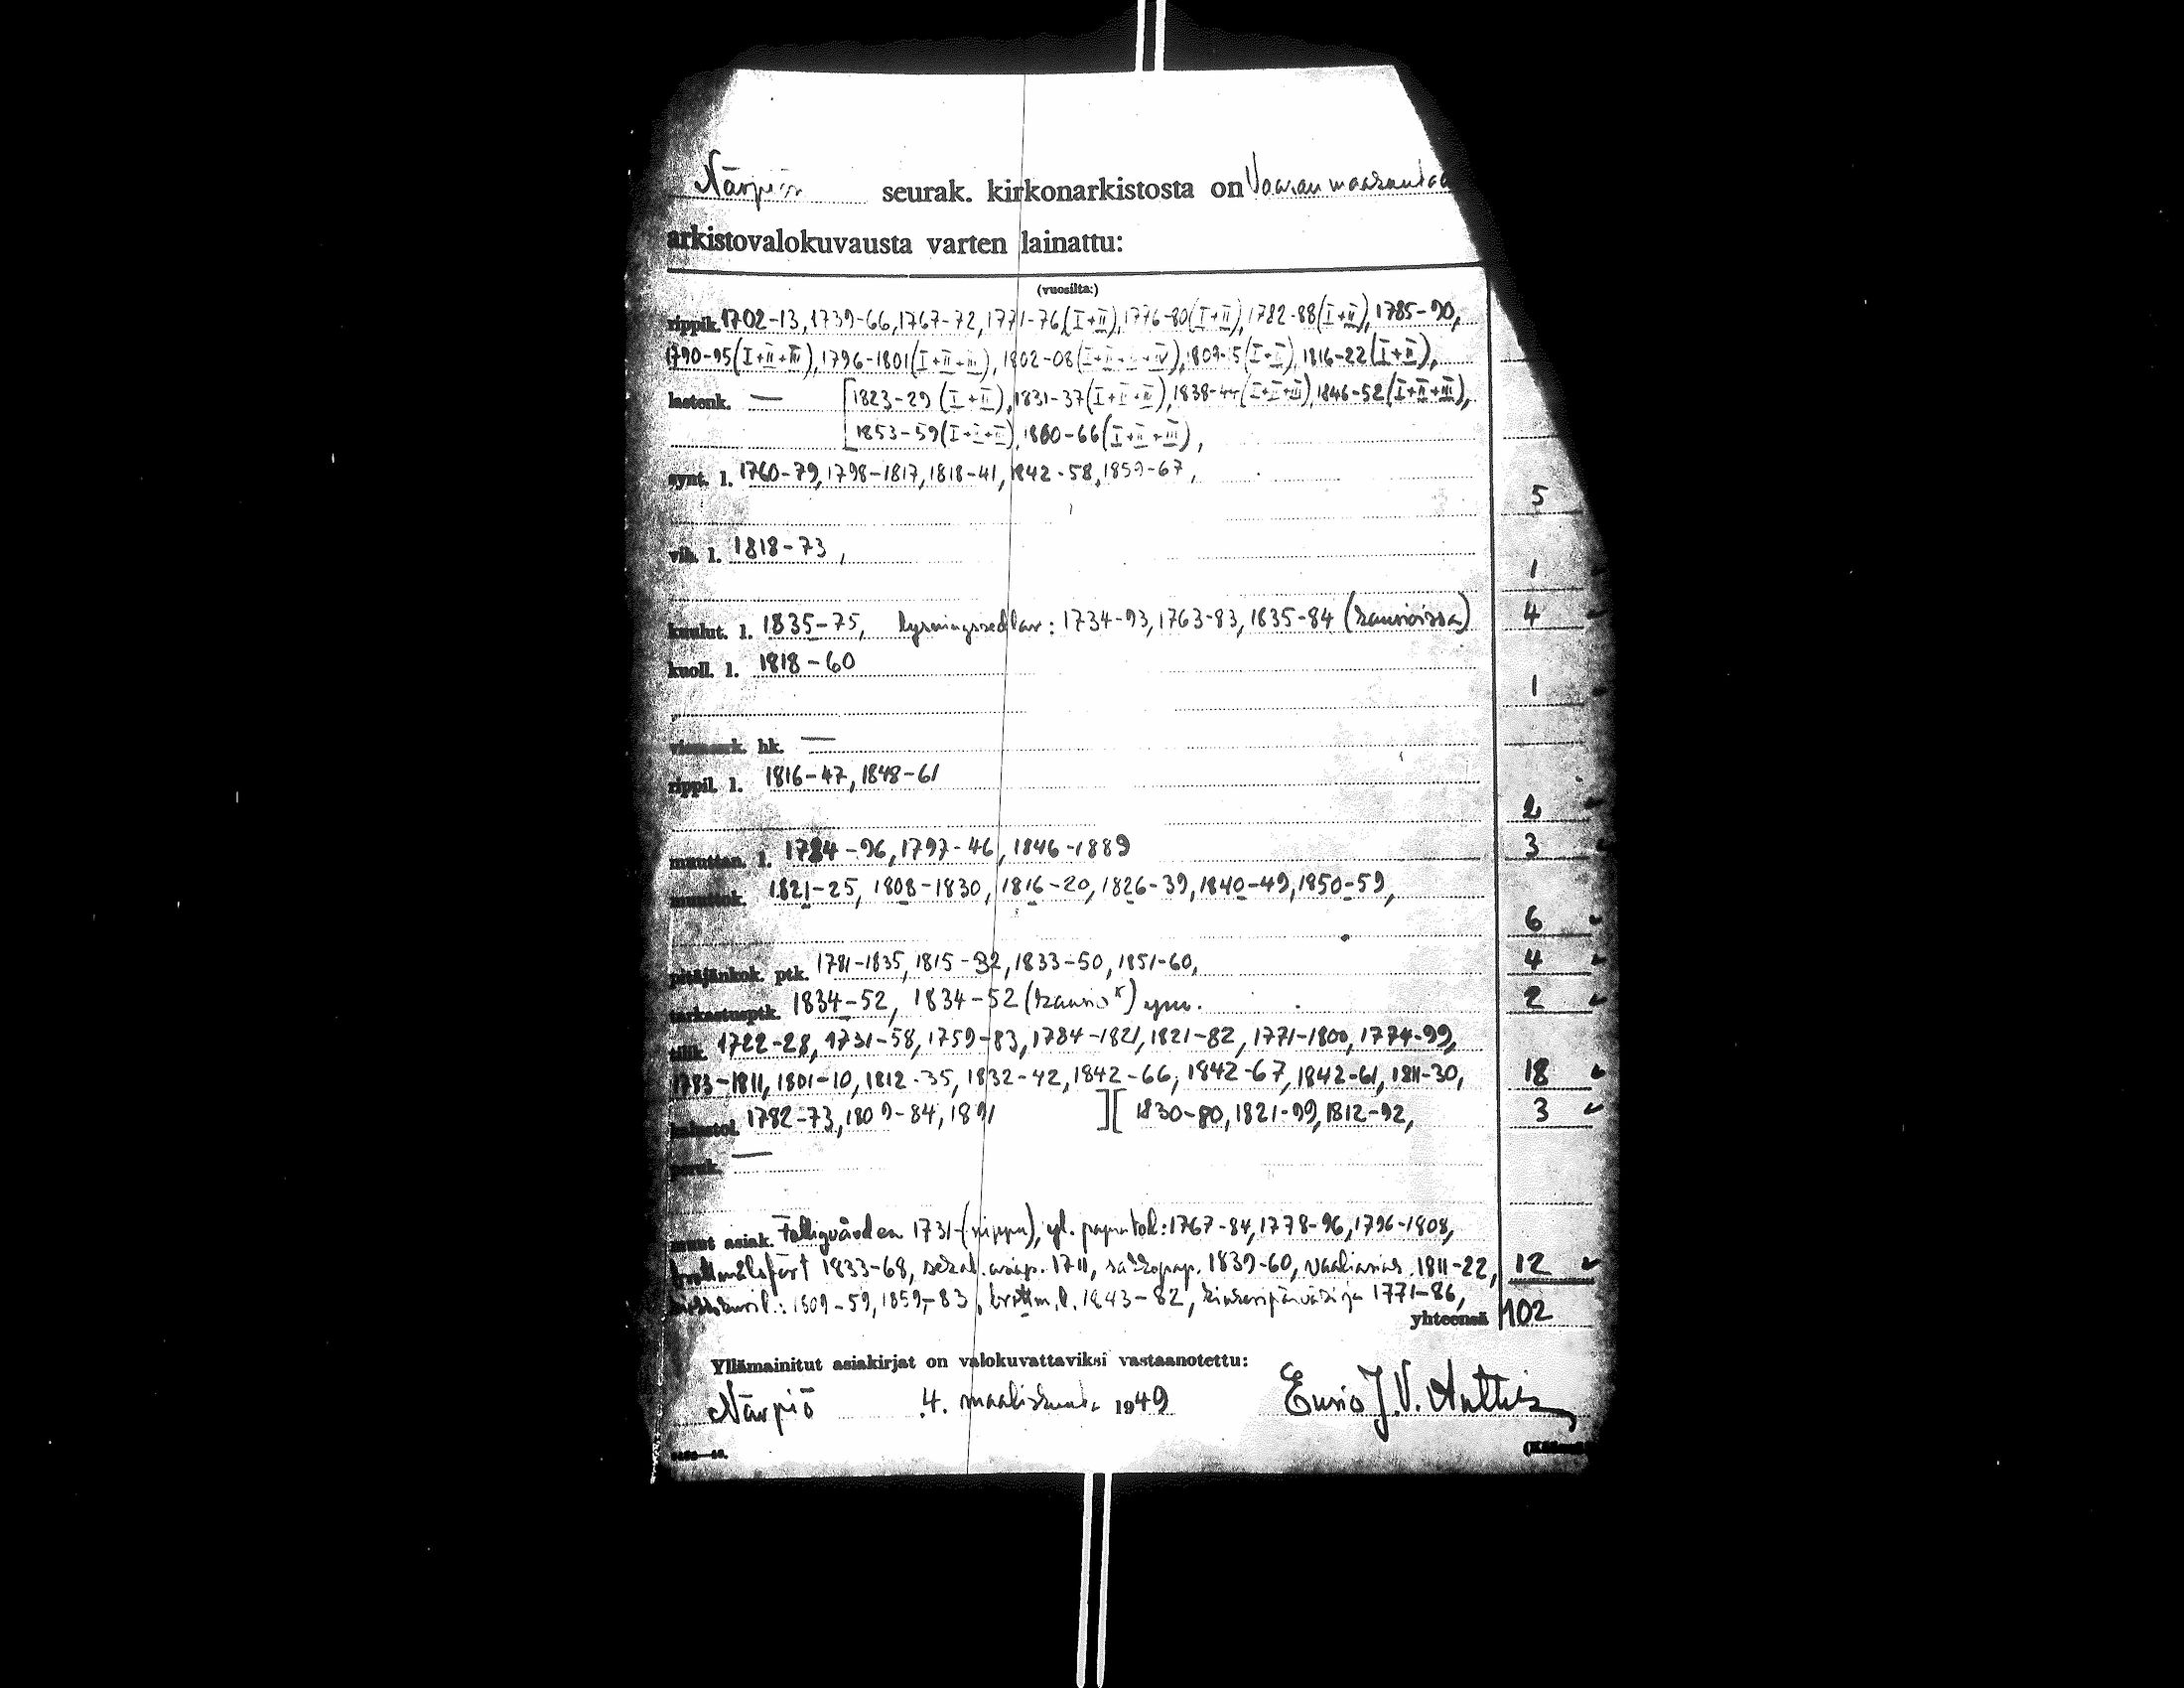 Närpiön seurak. kirkonarkistosta on Vaasan maakunta
arkistovalokuvausta varten lainattu:
(vuosilta:)
rippik. 1702-13, 1739-66, 1767-72, 1771-76 (I+II), 1776-80 (I+II), 1782-88 (I+II), 1785-90,
1790-95 (I+II+III), 1796-1801 (I+II+III), 1802-08 (I+II+III+IV), 1809-15 (I+II), 1816-22 (I+II),
lastenk. — [1823-29 (I+II), 1831-37 (I+II+III), 1838-44 (I+II+III), 1846-52 (I+II+III),
1853-59 (I+II+III), 1860-66 (I+II+III),
synt. l. 1760-79, 1798-1817, 1818-41, 1842-58, 1859-67,
5
vih. l. 1818-73,
1
kuulut. l. 1835-75, lysningssedlar: 1734-93, 1763-83, 1835-84 (kansioissa) 4
kuoll. l. 1818-60
1
hk. —
rippil. l. 1816-47, 1848-61
2
muuttan. l. 1784-96, 1797-46, 1846-1889 3
muuttok. 1821-25, 1808-1830, 1816-20, 1826-39, 1840-49, 1850-59,
6
pitäjänkok. ptk. 1781-1835, 1815-32, 1833-50, 1851-60, 4
tarkastusptk. 1834-52, 1834-52 (kansio) ym. 2
tilik. 1722-28, 1731-58, 1759-83, 1784-1821, 1821-82, 1771-1800, 1774-99,
1783-1811, 1801-10, 1812-35, 1832-42, 1842-66, 1842-67, 1842-61, 1811-30, 18
kalustol. 1782-73, 1809-84, 1891 ][ 1830-80, 1821-99, 1812-92, 3
peruk. —
muut asiak. Fattigvården 1731- (nippu), yl. 1767-84, 1778-96, 1796-1808,
1833-68, sekal. 1711, sakkopap. 1839-60, 1811-22, 12
1809-59, 1859-83, 1843-82, kinkeripäiväkirja 1771-86,
yhteensä 102
Yllämainitut asiakirjat on valokuvattaviksi vastaanotettu:
Närpiö 4. maaliskuuta 1949 J.V.